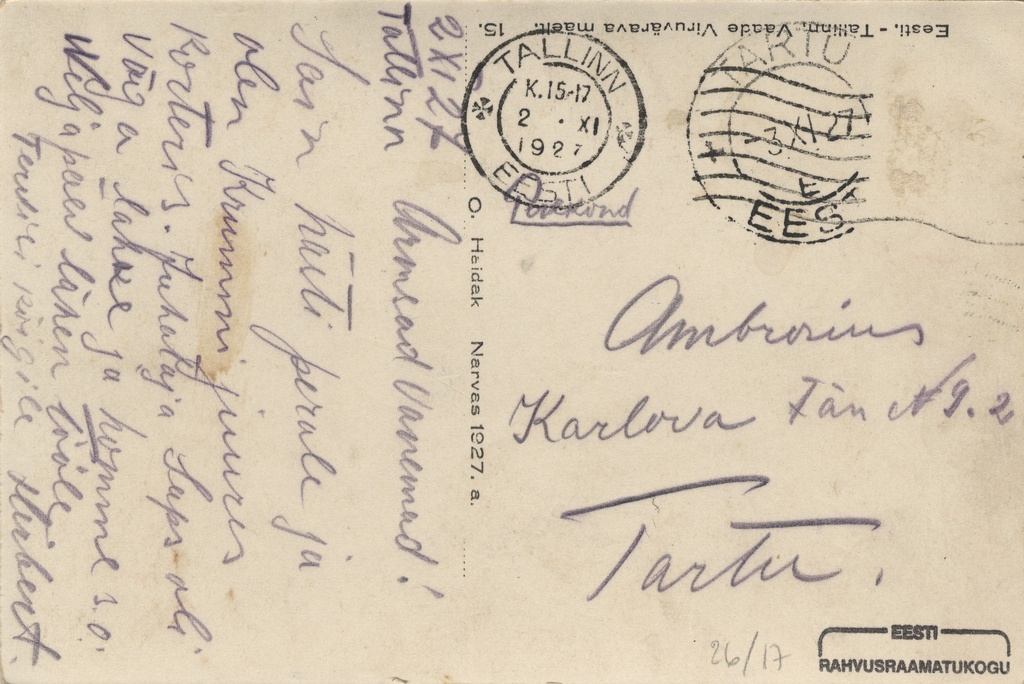 Eesti. - Tallinn. Vaade Viruvärava mäelt. 15.
TALLINN
K.15-17
2 . XI
1927
EESTI
TARTU
-3 XI 27
E
EEST
O. Haidak Narvas 1927. a.
2 XI 27
Tallinn
Armsad Vanemad!
Sain hästi perale ja
olen Krummi juures
Korteris. Juhataja Saps oli
Väga lahke ja homme s.o.
Neljapäev lähen tööle
Tervisi kõigile Herbert.
Postkond
Ambrosius
Karlova Tän № 9. 2
Tartu.
26/17
EESTI
RAHVUSRAAMATUKOGU